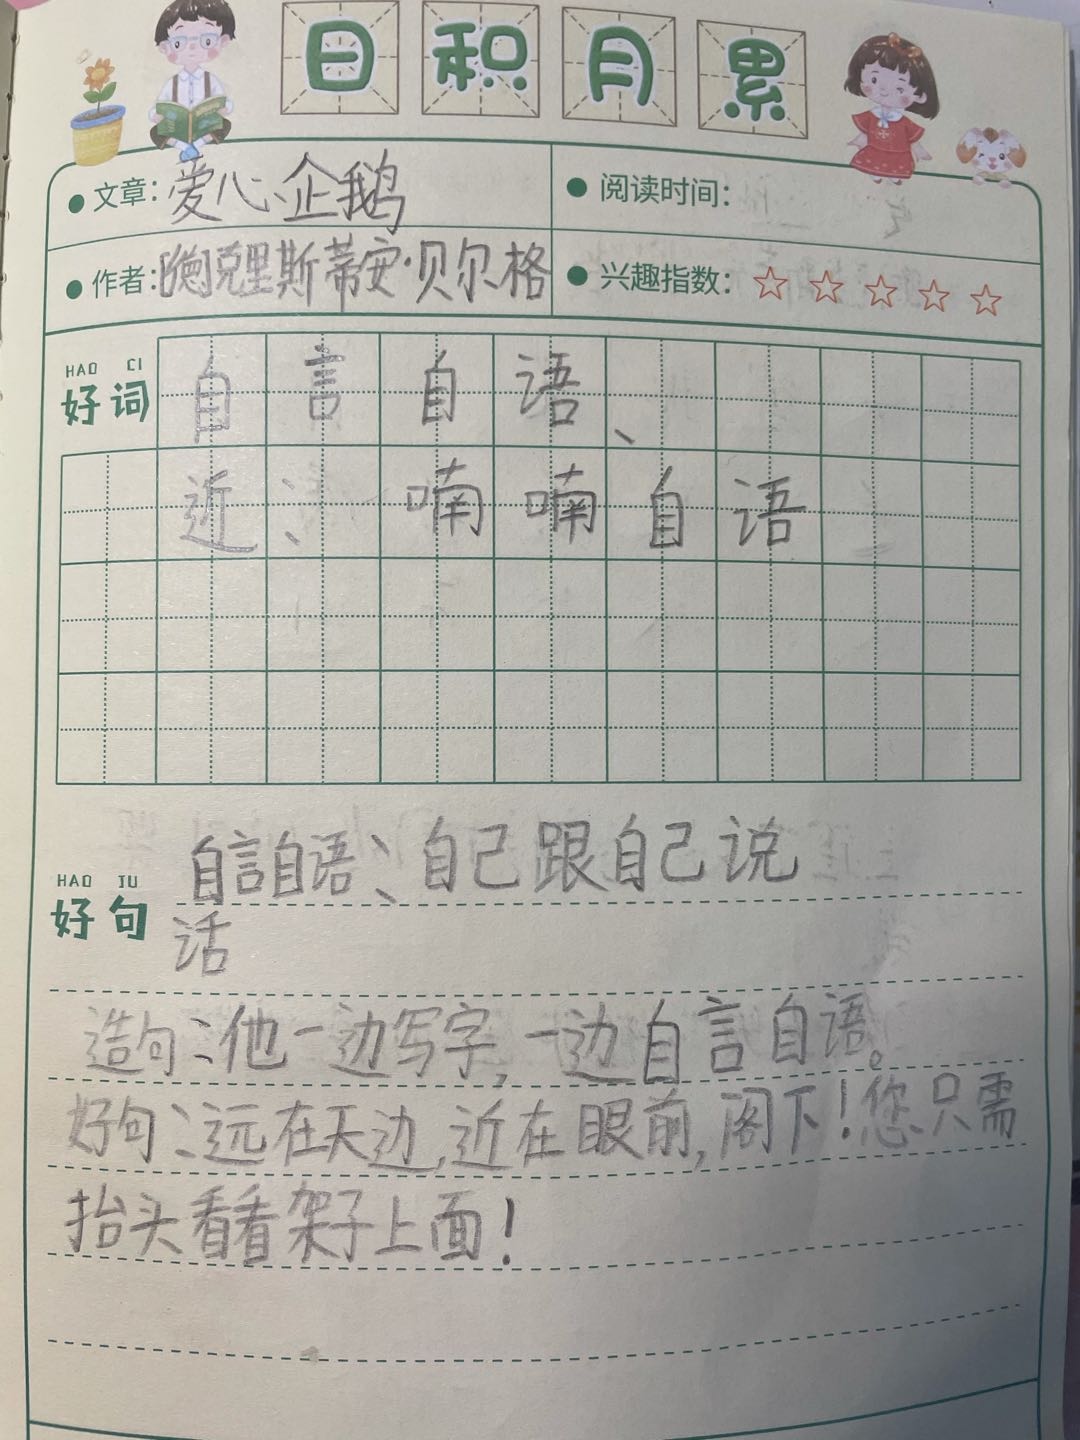 日积月累
文章：爱心企鹅
阅读时间：
作者：[德]克里斯蒂安·贝尔格
兴趣指数：☆☆☆☆☆
HAO CI
好词
自言自语、
近：喃喃自语
HAO JU
好句
自言自语：自己跟自己说
话
造句：他一边写字，一边自言自语。
好句：远在天边，近在眼前，阁下！您只需
抬头看看架子上面！